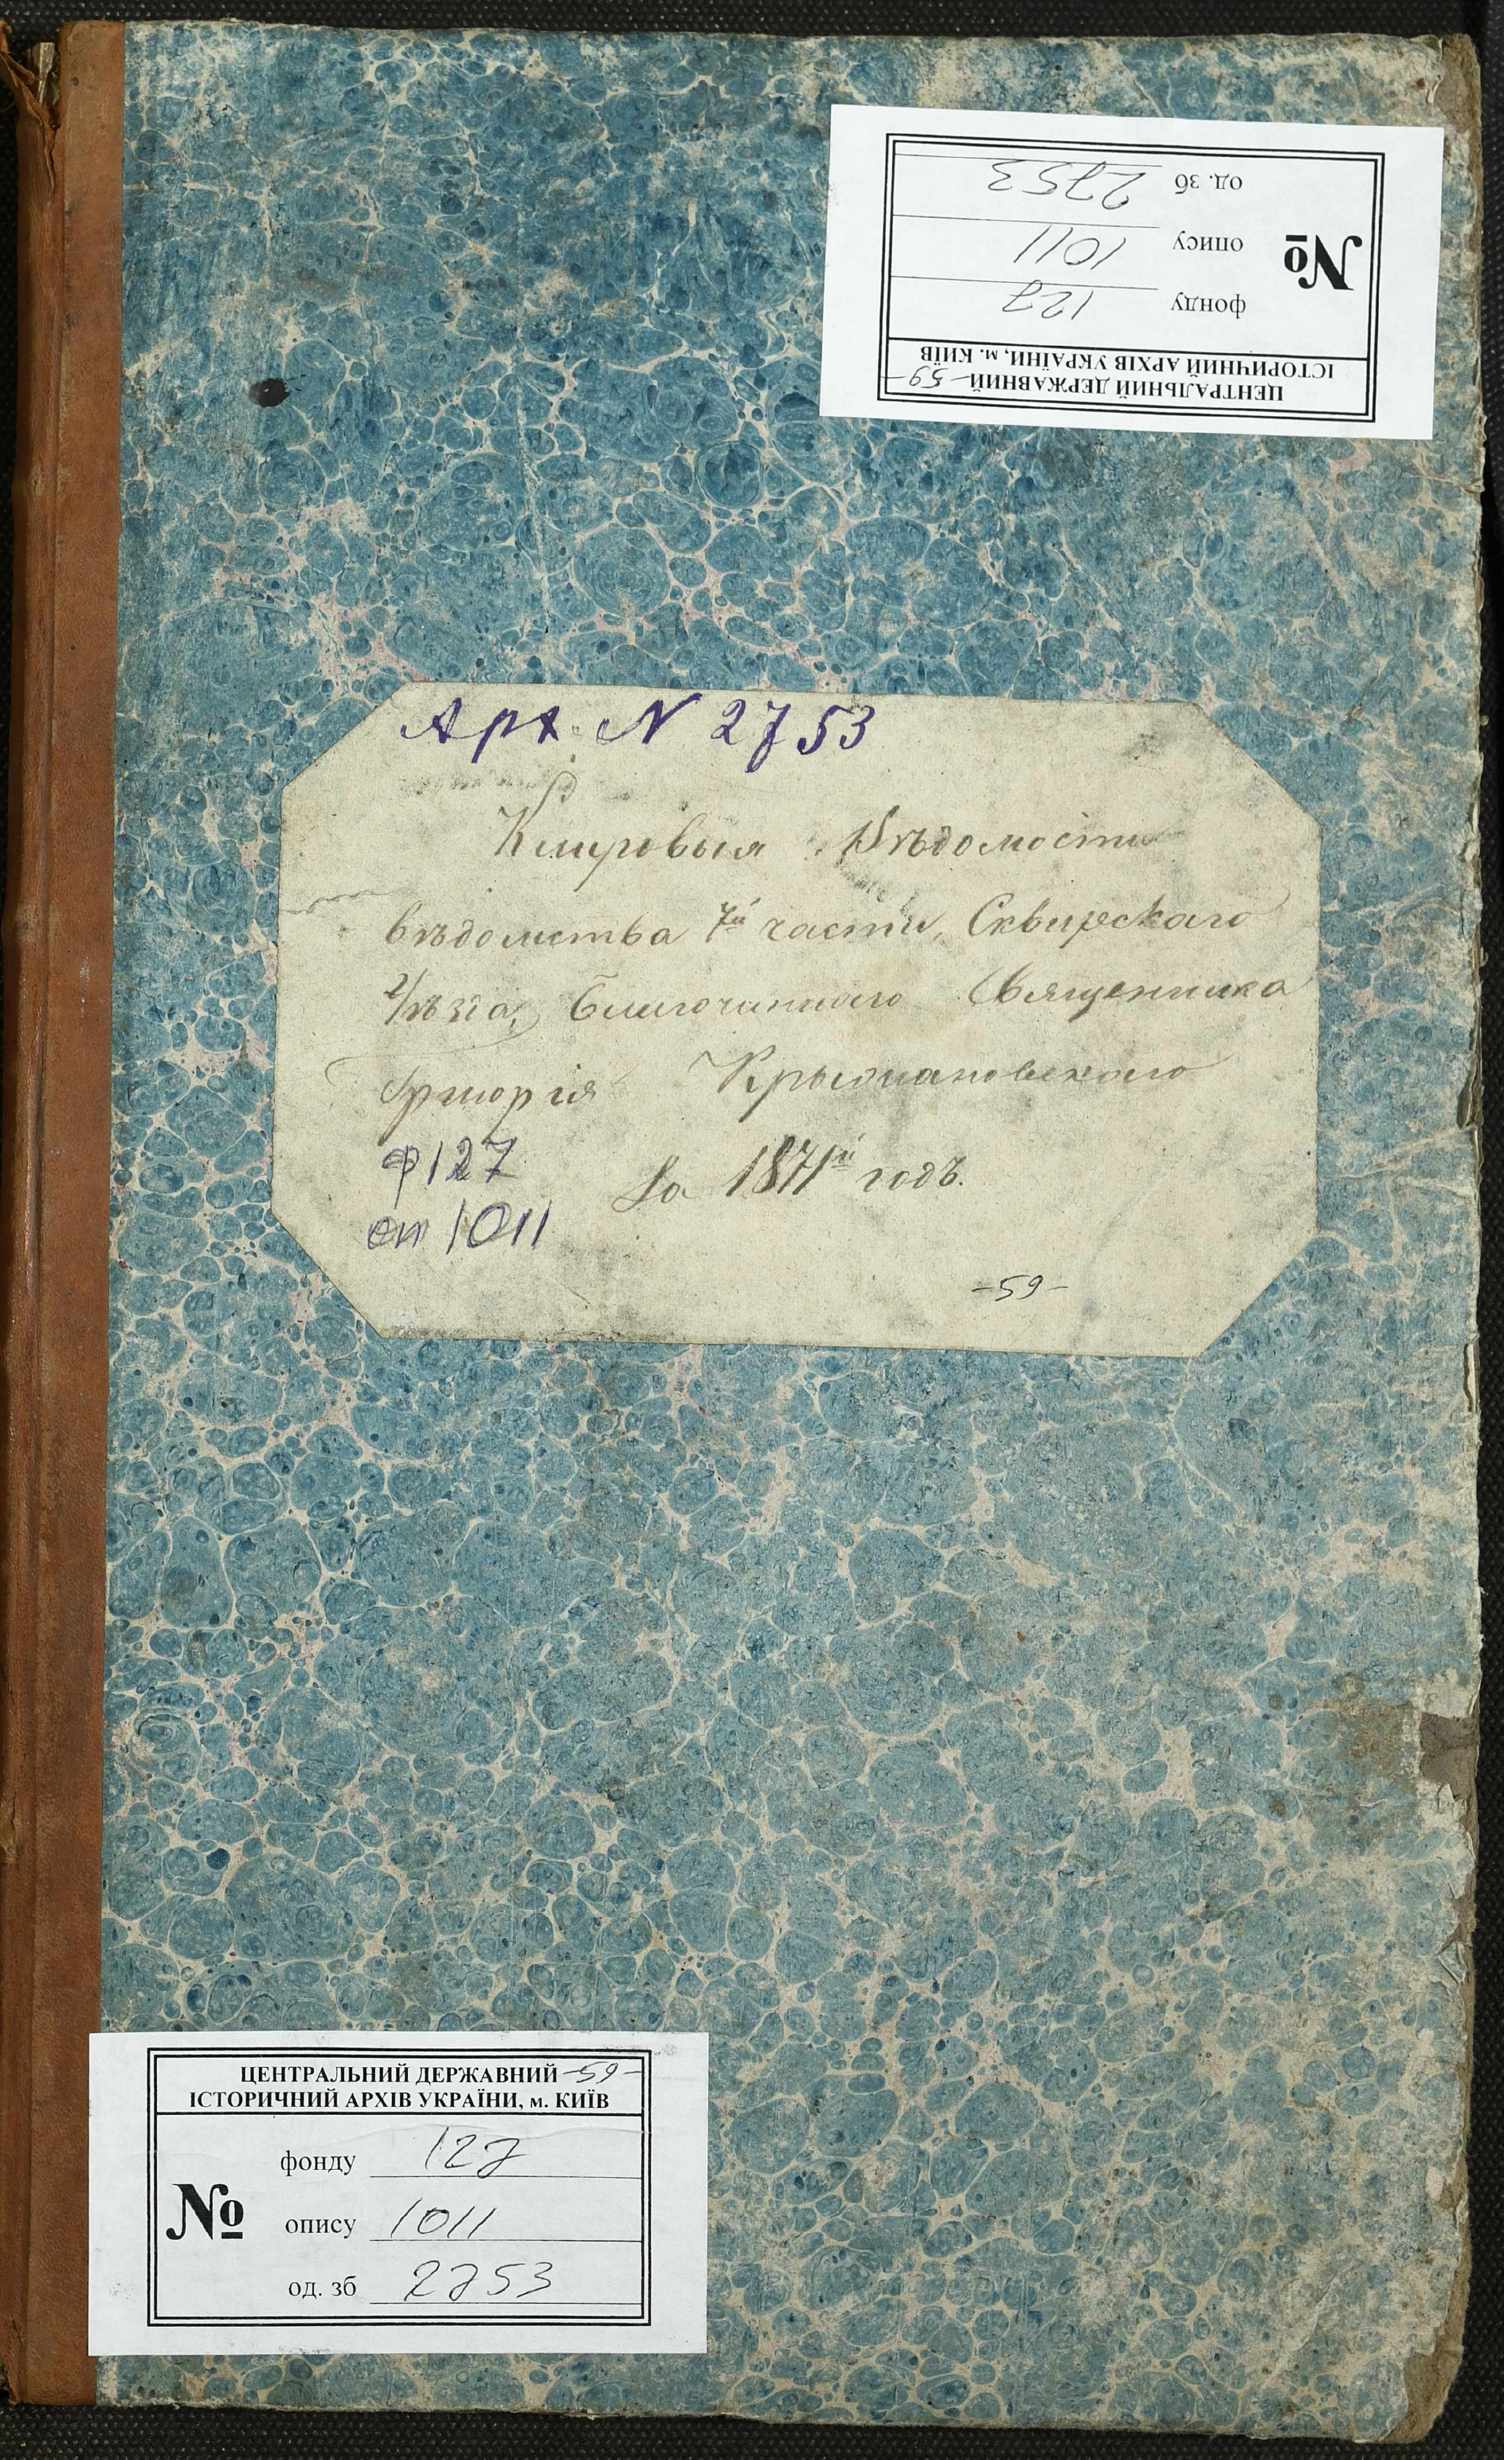 ЦЕНТРАЛЬНИЙ ДЕРЖАВНИЙ -59-
ІСТОРИЧНИЙ АРХІВ УКРАЇНИ, м. КИЇВ
№
фонду 127
опису 1011
од. зб 2753
Арх. N 2753
Клировыя Вѣдомости
вѣдомства 7й части, Сквирскаго
уѣзда, Благочиннаго Священника
Григорія Крыжановскаго
За 1871й годъ.
ф 127
оп 1011
-59-
ЦЕНТРАЛЬНИЙ ДЕРЖАВНИЙ -59-
ІСТОРИЧНИЙ АРХІВ УКРАЇНИ, м. КИЇВ
№
фонду 127
опису 1011
од. зб 2753